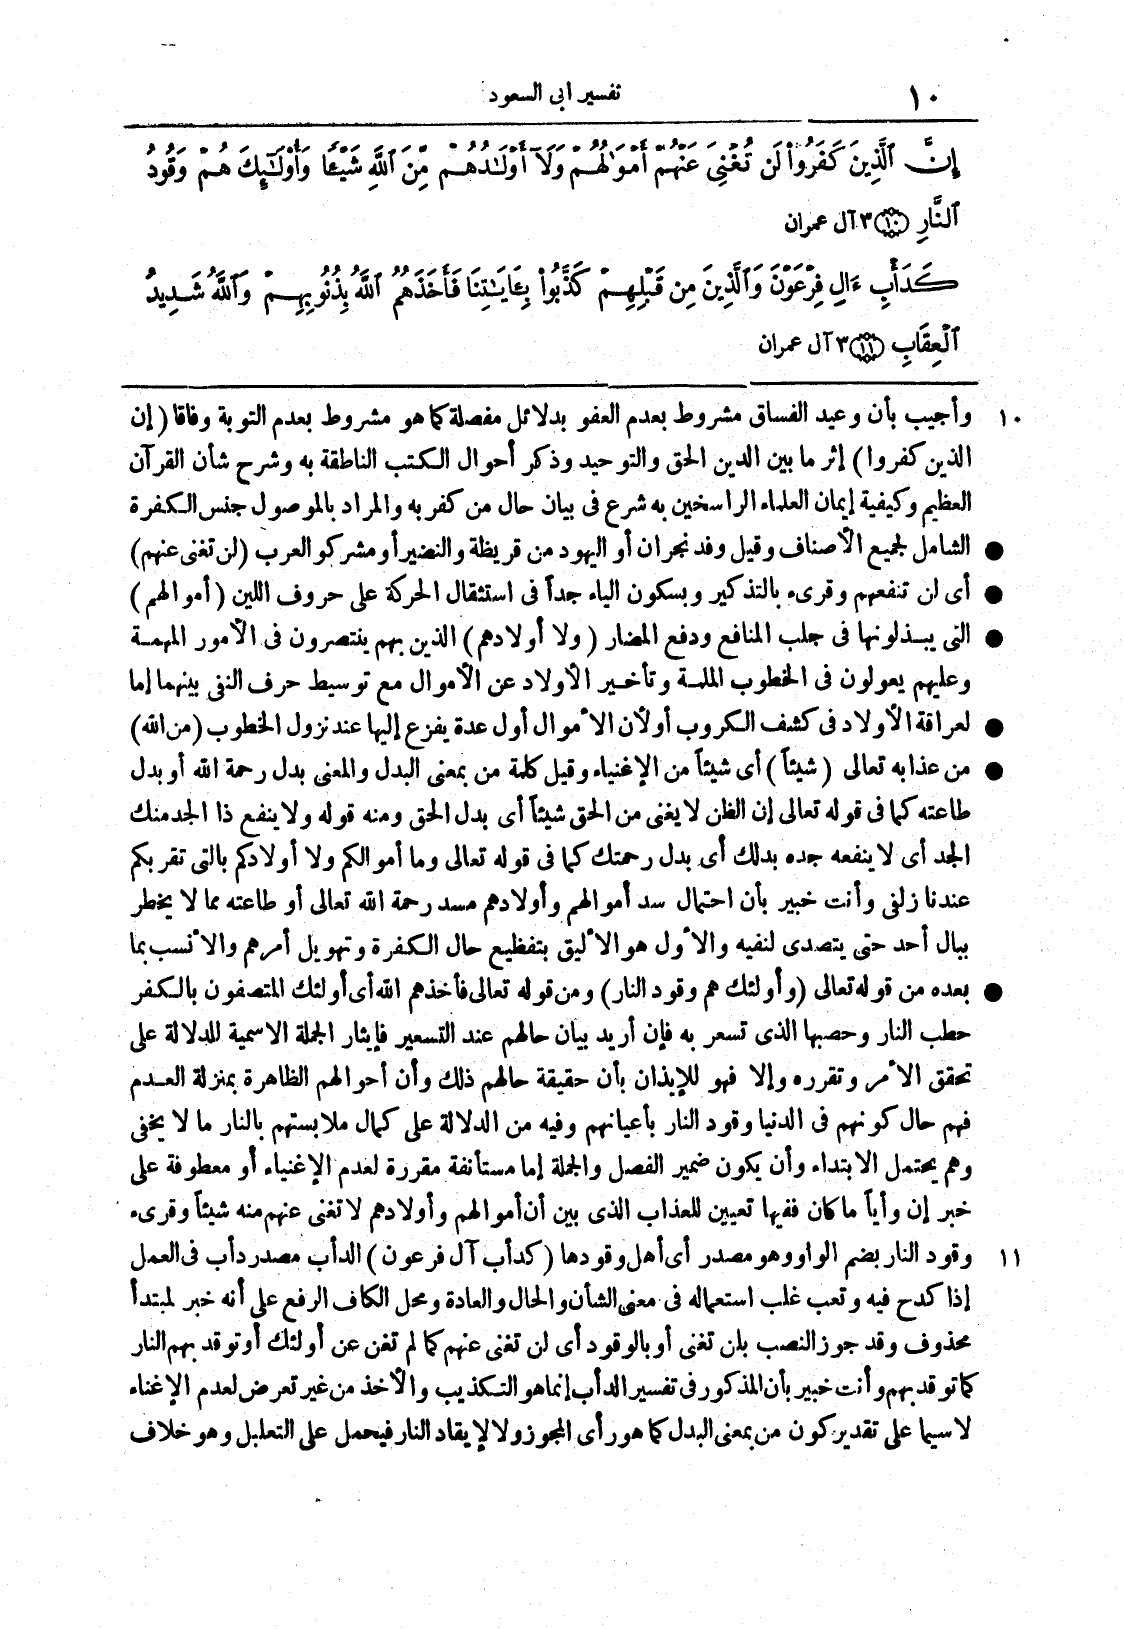 ١٠
تفسير ابى السعود
إِنَّ ٱلَّذِينَ كَفَرُوا۟ لَن تُغْنِىَ عَنْهُمْ أَمْوَٰلُهُمْ وَلَآ أَوْلَـٰدُهُم مِّنَ ٱللَّهِ شَيْـًٔا وَأُو۟لَـٰٓئِكَ هُمْ وَقُودُ
ٱلنَّارِ ١٠ ٣ آل عمران
كَدَأْبِ ءَالِ فِرْعَوْنَ وَٱلَّذِينَ مِن قَبْلِهِمْ كَذَّبُوا۟ بِـَٔايَـٰتِنَا فَأَخَذَهُمُ ٱللَّهُ بِذُنُوبِهِمْ وَٱللَّهُ شَدِيدُ
ٱلْعِقَابِ ١١ ٣ آل عمران
١٠ وأجيب بأن وعيد الفساق مشروط بعدم العفو بدلائل مفصلة كما هو مشروط بعدم التوبة وفاقا (إن
الذين كفروا) إثر ما بين الدين الحق والتوحيد وذكر أحوال الكتب الناطقة به وشرح شأن القرآن
العظيم وكيفية إيمان العلماء الراسخين به شرع فى بيان حال من كفر به والمراد بالموصول جنس الكفرة
● الشامل لجميع الأصناف وقيل وفد نجران أو اليهود من قريظة والنضير أو مشركو العرب (لن تغنى عنهم)
● أى لن تنفعهم وقرىء بالتذكير وبسكون الياء جداً فى استثقال الحركة على حروف اللين (أموالهم)
● التى يبذلونها فى جلب المنافع ودفع المضار (ولا أولادهم) الذين بهم ينتصرون فى الأمور المهمة
وعليهم يعولون فى الخطوب الملمة وتأخير الأولاد عن الأموال مع توسيط حرف النفى بينهما إما
● لعراقة الأولاد فى كشف الكروب أو لأن الأموال أول عدة يفزع إليها عند نزول الخطوب (من الله)
● من عذابه تعالى (شيئاً) أى شيئاً من الإغنياء وقيل كلمة من بمعنى البدل والمعنى بدل رحمة الله أو بدل
طاعته كما فى قوله تعالى إن الظن لا يغنى من الحق شيئاً أى بدل الحق ومنه قوله ولا ينفع ذا الجد منك
الجد أى لا ينفعه جده بدلك أى بدل رحمتك كما فى قوله تعالى وما أموالكم ولا أولادكم بالتى تقربكم
عندنا زلفى وأنت خبير بأن احتمال سد أموالهم وأولادهم مسد رحمة الله تعالى أو طاعته مما لا يخطر
ببال أحد حتى يتصدى لنفيه والأول هو الأليق بتفظيع حال الكفرة وتهويل أمرهم والأنسب بما
● بعده من قوله تعالى (وأولئك هم وقود النار) ومن قوله تعالى فأخذهم الله أى أولئك المتصفون بالكفر
حطب النار وحصبها الذى تسعر به فإن أريد بيان حالهم عند التسعير فإيثار الجملة الاسمية للدلالة على
تحقق الأمر وتقرره وإلا فهو للإيذان بأن حقيقة حالهم ذلك وأن أحوالهم الظاهرة بمنزلة العدم
فهم حال كونهم فى الدنيا وقود النار بأعيانهم وفيه من الدلالة على كمال ملابستهم بالنار ما لا يخفى
وهم يحتمل الابتداء وأن يكون ضمير الفصل والجملة إما مستأنفة مقررة لعدم الإغنياء أو معطوفة على
خبر إن وأياً ما كان ففيها تعيين للعذاب الذى بين أن أموالهم وأولادهم لا تغنى عنهم منه شيئاً وقرىء
١١ وقود النار بضم الواو وهو مصدر أى أهل وقودها (كدأب آل فرعون) الدأب مصدر دأب فى العمل
إذا كدح فيه وتعب غلب استعماله فى معنى الشأن والحال والعادة ومحل الكاف الرفع على أنه خبر لمبتدأ
محذوف وقد جوز النصب بلن تغنى أو بالوقود أى لن تغنى عنهم كما لم تغن عن أولئك أو توقد بهم النار
كما توقد بهم وأنت خبير بأن المذكور فى تفسير الدأب إنما هو التكذيب والأخذ من غير تعرض لعدم الإغناء
لا سيما على تقدير كون من بمعنى البدل كما هو رأى المجوز ولا لإيقاد النار فيحمل على التعليل وهو خلاف